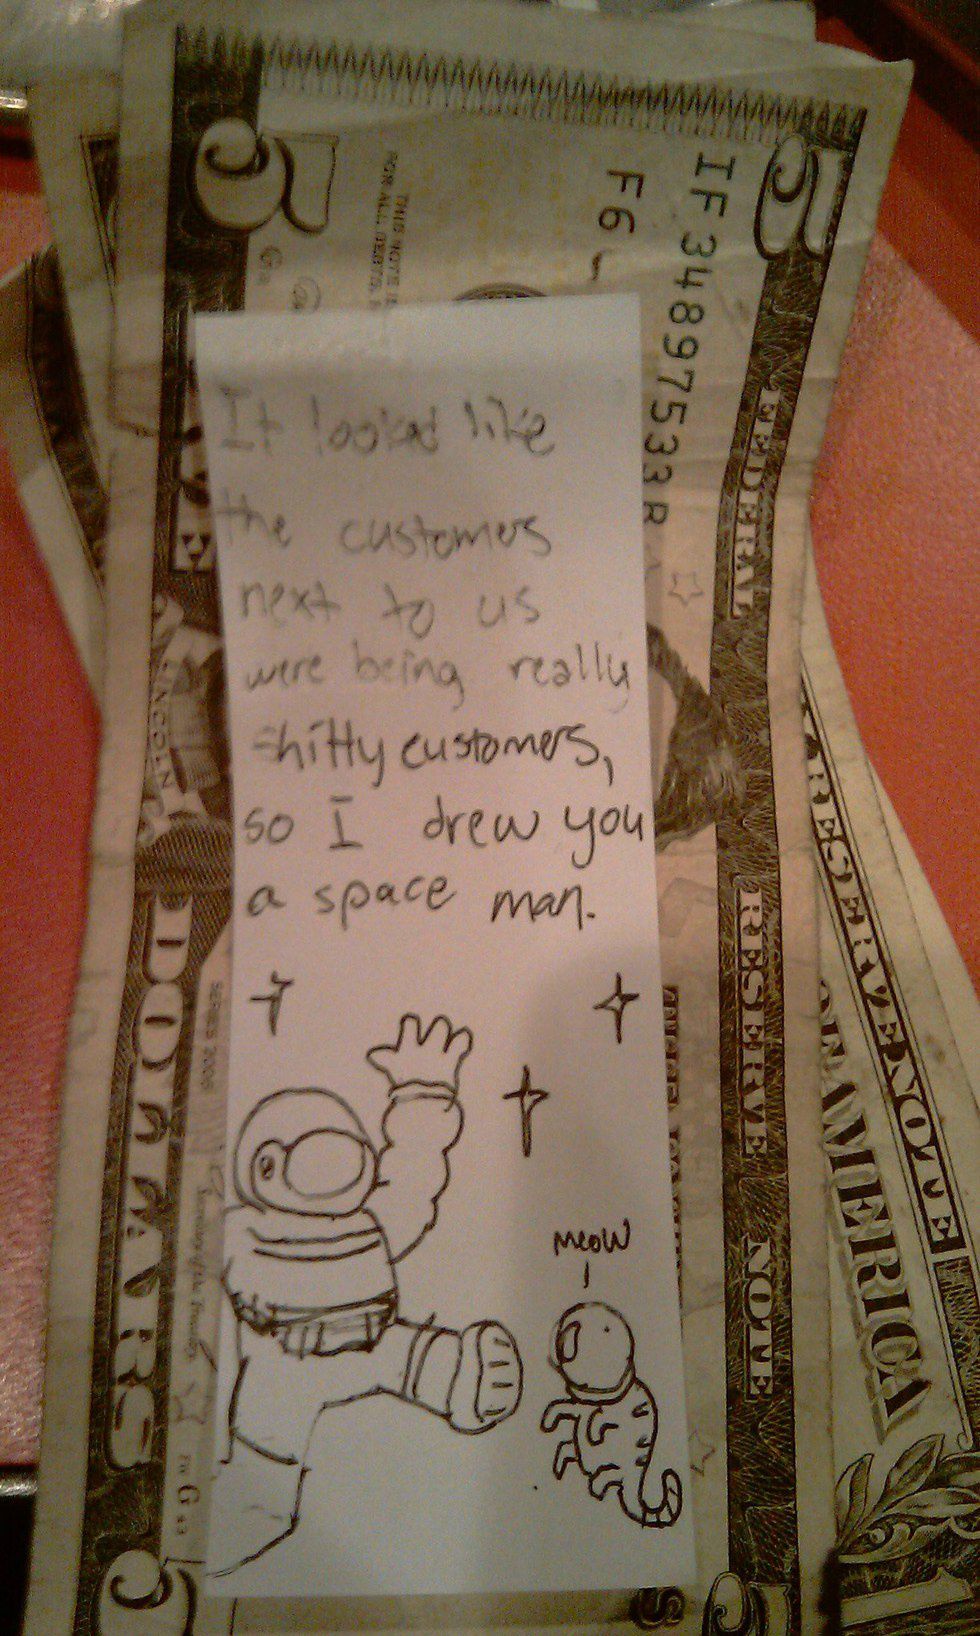 It looked like
the customers
next to us
were being really
shitty customers,
so I drew you
a space man.
meow
5
5
IF 34897533 R
F6
THIS NOTE IS
FOR ALL DEBTS,
FEDERAL RESERVE NOTE
DOLLARS
LINCOLN
SERIES 2006
FW G
RESERVE NOTE
OF AMERICA
1
5
5